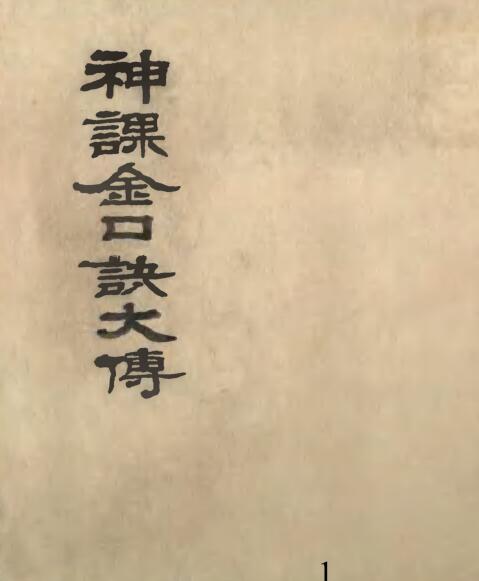 神課金口訣大傳
1